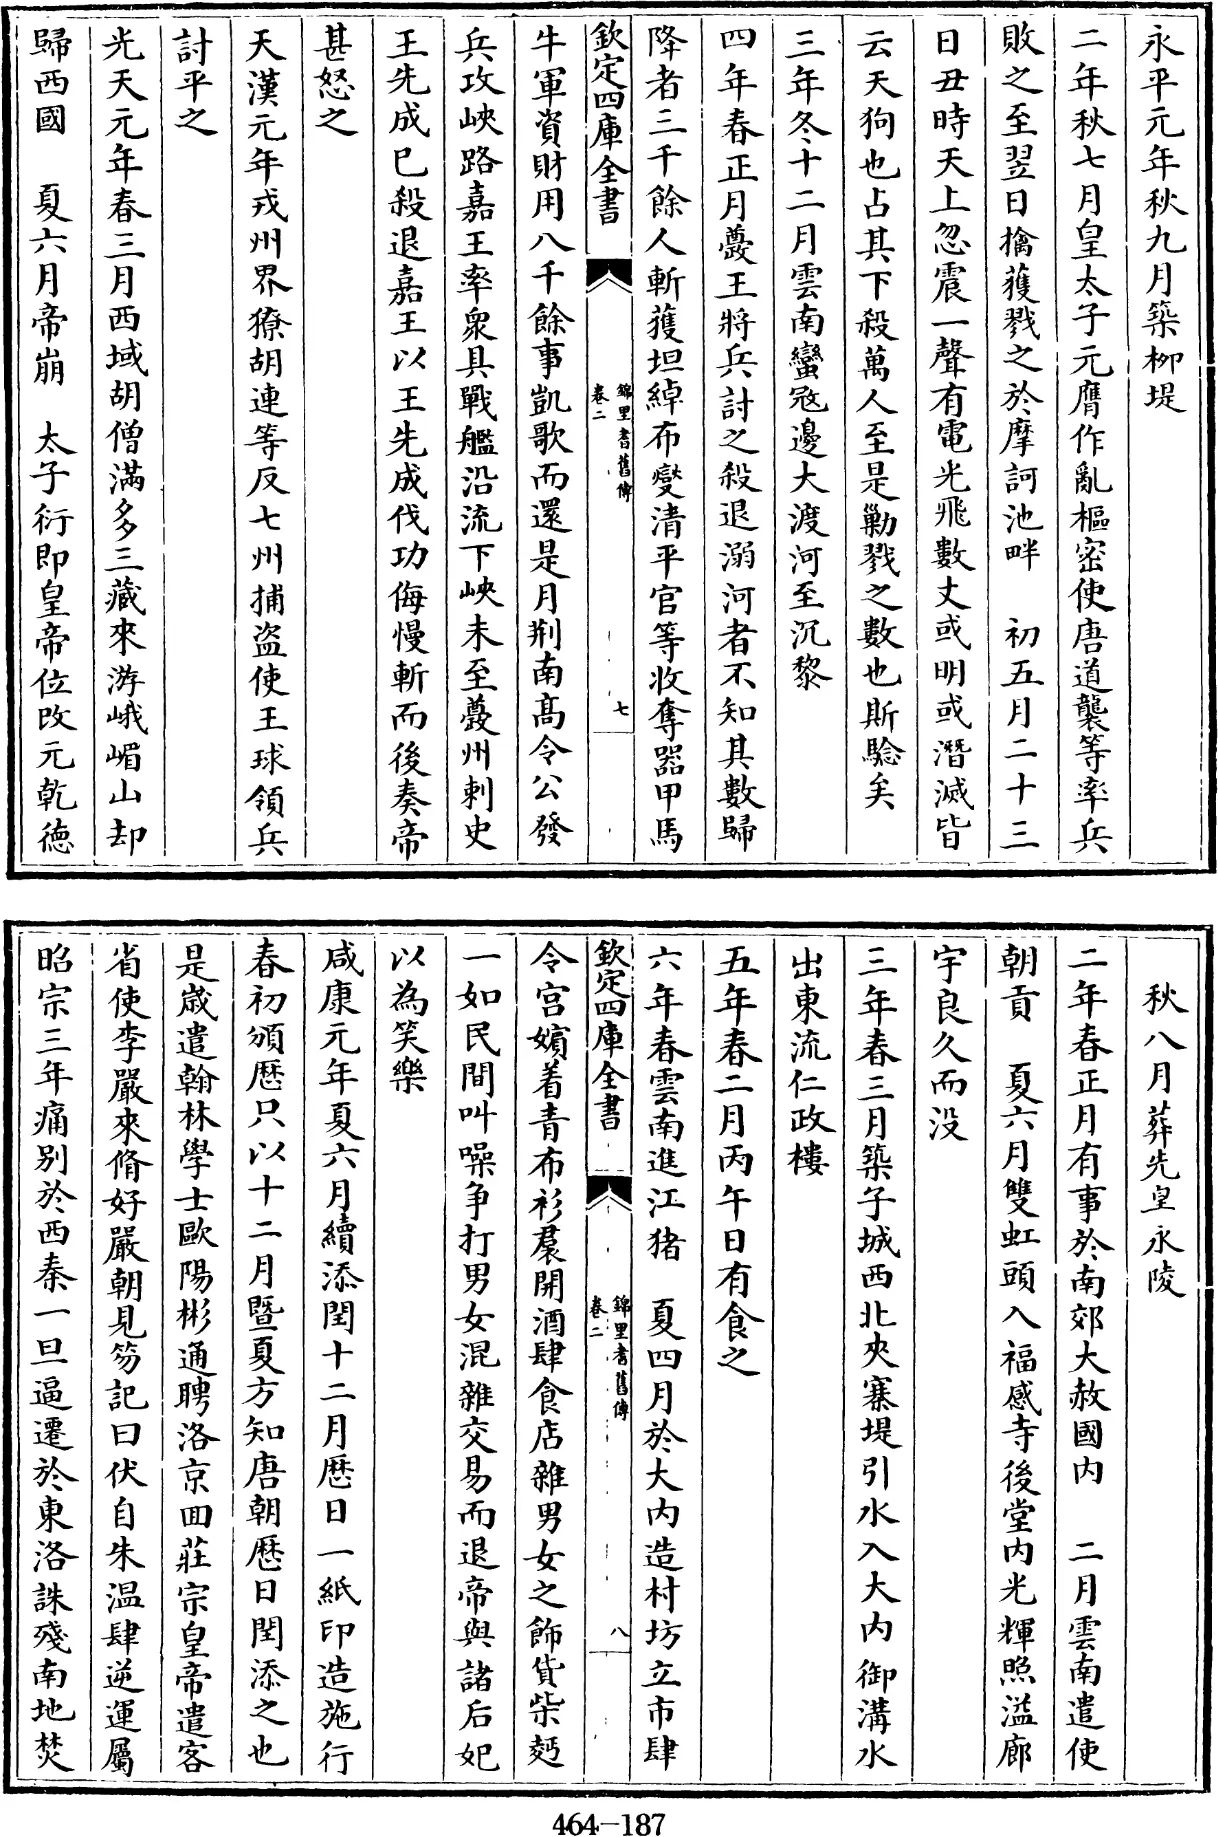 永平元年秋九月築柳堤
二年秋七月皇太子元膺作亂樞密使唐道襲等率兵
敗之至翌日擒獲戮之於摩訶池畔　初五月二十三
日丑時天上忽震一聲有電光飛數丈或明或潛滅皆
云天狗也占其下殺萬人至是勦戮之數也斯驗矣
三年冬十二月雲南蠻寇邊大渡河至沉黎
四年春正月夔王將兵討之殺退溺河者不知其數歸
降者三千餘人斬獲坦綽布燮清平官等收奪器甲馬
欽定四庫全書
錦里耆舊傳
卷二
七
牛軍資財用八千餘事凱歌而還是月荆南髙令公發
兵攻峽路嘉王率衆具戰艦沿流下峽未至夔州刺史
王先成已殺退嘉王以王先成伐功侮慢斬而後奏帝
甚怒之
天漢元年戎州界獠胡連等反七州捕盜使王球領兵
討平之
光天元年春三月西域胡僧滿多三藏來游峨嵋山却
歸西國　夏六月帝崩　太子衍即皇帝位改元乾德
秋八月葬先皇永陵
二年春正月有事於南郊大赦國内　二月雲南遣使
朝貢　夏六月雙虹頭入福感寺後堂内光輝照溢廊
宇良久而没
三年春三月築子城西北夾寨堤引水入大内御溝水
出東流仁政樓
五年春二月丙午日有食之
六年春雲南進江猪　夏四月於大内造村坊立市肆
欽定四庫全書
錦里耆舊傳
卷二
八
令宫嬪着青布衫裠開酒肆食店雜男女之飾貨柴麪
一如民間叫噪争打男女混雜交易而退帝與諸后妃
以為笑樂
咸康元年夏六月續添閏十二月歴日一紙印造施行
春初頒歴只以十二月暨夏方知唐朝歴日閏添之也
是歳遣翰林學士歐陽彬通聘洛京囬莊宗皇帝遣客
省使李嚴來脩好嚴朝見笏記曰伏自朱温肆逆運屬
昭宗三年痛别於西秦一旦逼遷於東洛誅殘南地焚
464-187